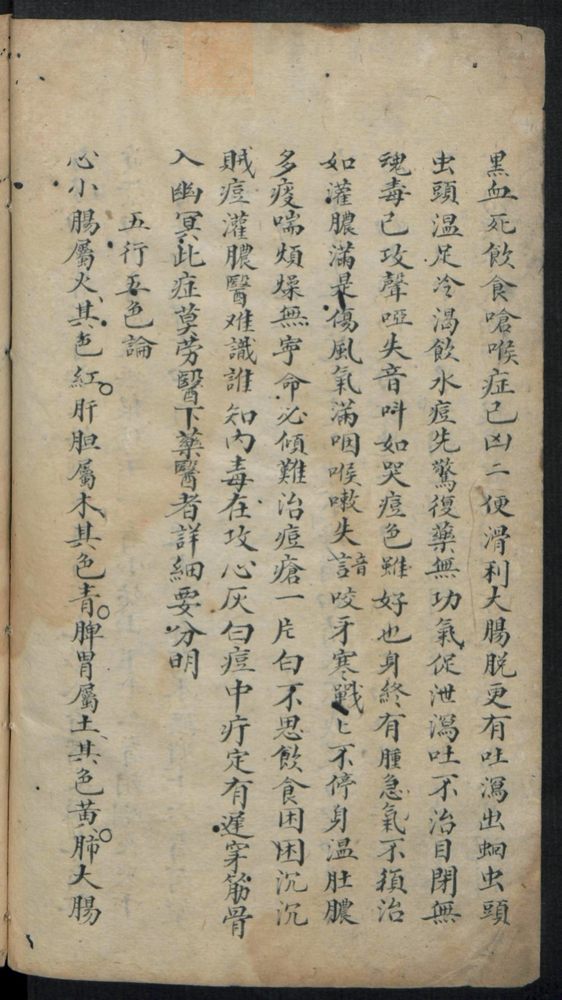 黑血死飲食嗆喉症已凶二便滑利大腸脫更有吐瀉出蛔虫頭
虫頭溫足冷渴飲水痘先驚復藥無功氣促泄瀉吐不治目閉無
魂毒已攻聲啞失音呌如哭痘色雖好也身終有腫急氣不須治
如灌膿滿是傷風氣滿咽喉嗽失言音咬牙寒戰〻不停身溫肚膿
多疫喘煩燥無寧命必傾難治痘瘡一片白不思飲食困困沉沉
賊痘灌膿醫难識誰知內毒在攻心灰白痘中疔定有遲穿筋骨
入幽冥此症莫劳醫下藥醫者詳細要分明
五行五色論
心小腸屬火其色紅肝胆屬木其色青脾胃屬土其色黃肺大腸